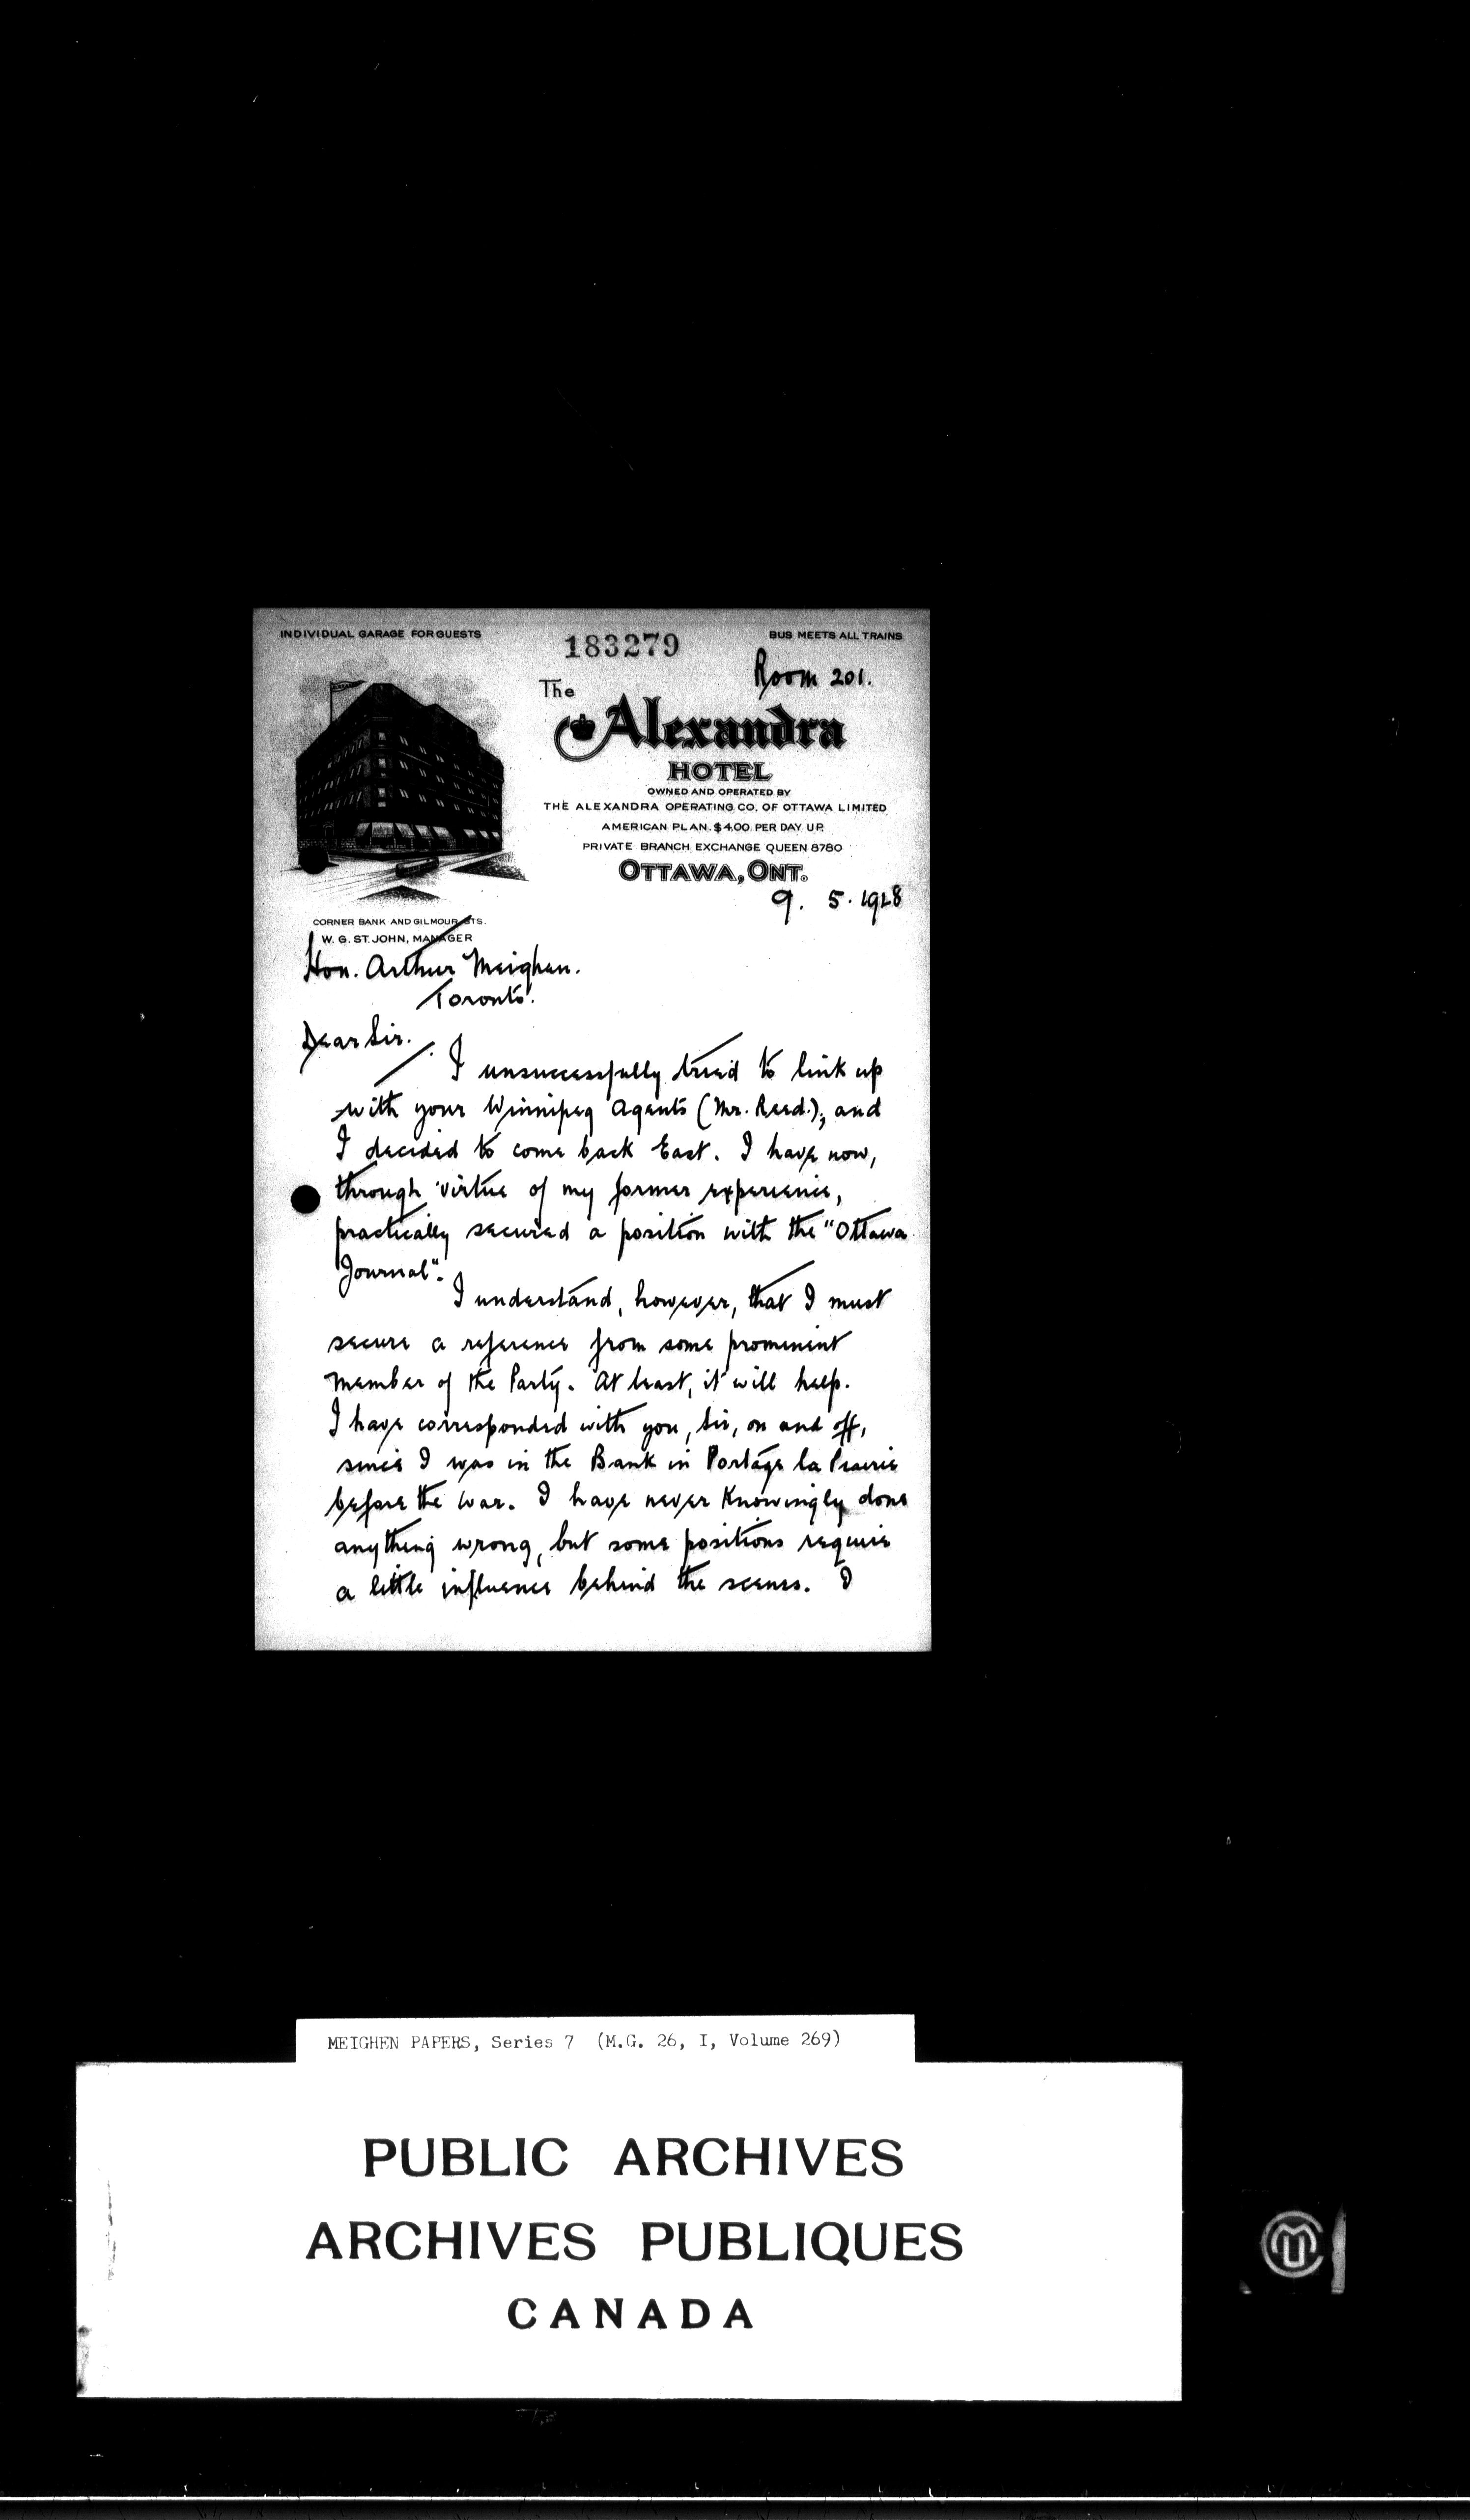 INDIVIDUAL GARAGE FOR GUESTS
183279
BUS MEETS ALL TRAINS
Room 201.
The
Alexandra
HOTEL
OWNED AND OPERATED BY
THE ALEXANDRA OPERATING CO. OF OTTAWA LIMITED
AMERICAN PLAN. $4.00 PER DAY UP.
PRIVATE BRANCH EXCHANGE QUEEN 8780
OTTAWA, ONT.
9. 5. 1928
CORNER BANK AND GILMOUR STS.
W. G. ST. JOHN, MANAGER
Hon. Arthur Meighen.
Toronto.
Dear Sir.
I unsuccessfully tried to link up
with your Winnipeg Agents (Mr. Reed.), and
I decided to come back East. I have now,
through virtue of my former experience,
practically secured a position with the "Ottawa
Journal".
I understand, however, that I must
secure a reference from some prominent
member of the Party. At least, it will help.
I have corresponded with you, Sir, on and off,
since I was in the Bank in Portage la Prairie
before the war. I have never knowingly done
anything wrong, but some positions require
a little influence behind the scenes. I
MEIGHEN PAPERS, Series 7 (M.G. 26, I, Volume 269)
PUBLIC ARCHIVES
ARCHIVES PUBLIQUES
CANADA